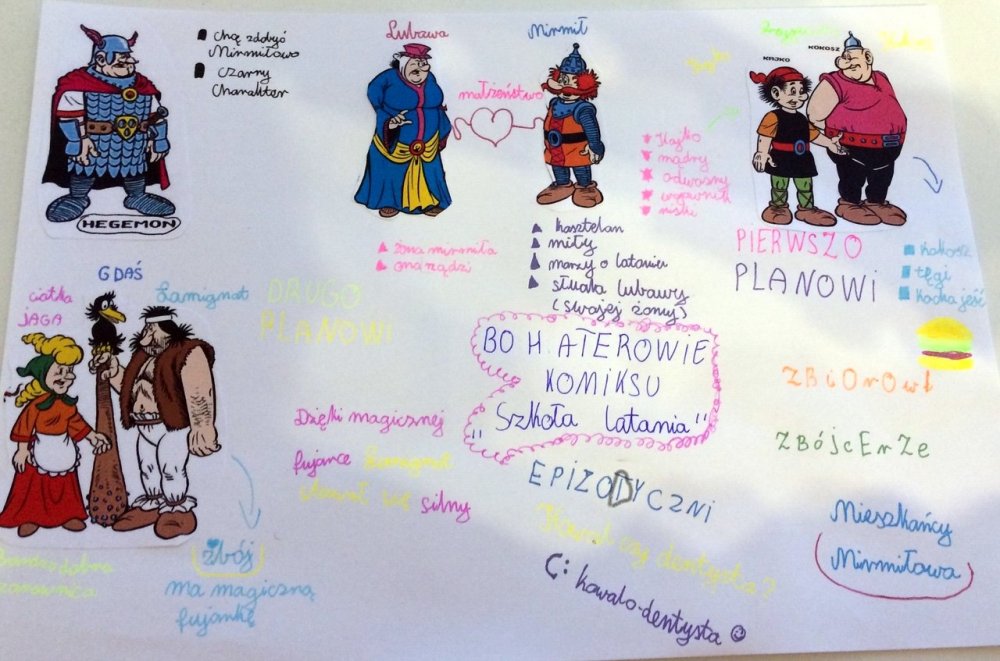 Chcę zdobyć
Mirmiłowo
Czarny
Charakter
HEGEMON
Lubawa
Mirmił
małżeństwo
żona mirmiła
ona rządzi
kasztelan
miły
marzy o lataniu
słucha lubawy
(swojej żony)
KAJKO
KOKOSZ
Kajko
mądry
odważny
wojownik
niski
PIERWSZO
PLANOWI
kokosz
tęgi
kocha jeść
GDAŚ
ciotka
JAGA
Łamignat
DRUGO
PLANOWI
Bardzo dobra
czarownica
zbój
ma magiczną
fujarkę
Dzięki magicznej
fujarce łamignat
stawał się silny
BOHATEROWIE
KOMIKSU
"Szkoła latania"
EPIZODYCZNI
Kowal czy dentysta?
C: kowalo-dentysta
ZBIOROWI
ZBÓJCERZE
Mieszkańcy
Mirmiłowa